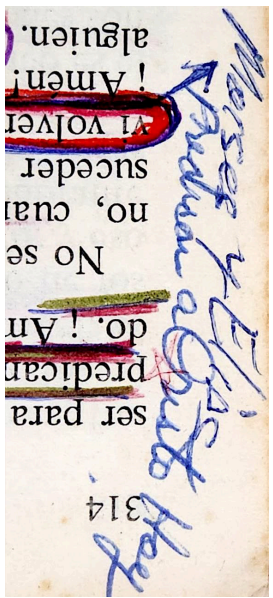 314
ser para
predican
do. ¡ Am
No se
no, cuan
suceder
vi volver
¡ Amén!
alguien.
Moises y Elias
Predican a Cristo Hoy